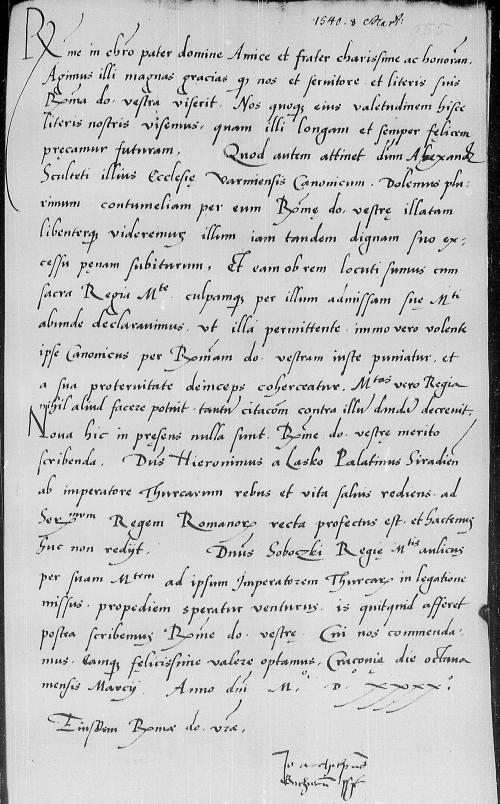 1540. 8 Mart:
Rme in chro pater domine Amice et frater charissime ac honoran.
Agimus illi magnas gracias qd nos et seruitore et literis suis
Rma do. vestra viserit. Nos quoq; eius valetudinem hisce
literis nostris visemus, quam illi longam et semper fęlicem
pręcamur futuram. Quod autem attinet dnm Alexandr
Sculteti illius Ecclesię Varmiensis Canonicum. Dolemus plu:
rimum contumeliam per eum Rmę do. vestrę illatam
libenterq; videremus illum iam tandem dignam suo ex:
cessu pęnam subiturum. Et eam ob rem locuti sumus cum
sacra Regia Mte culpamq; per illum admissam suę Mti
abunde declarauimus. vt illa permittente. immo vero volente
ipse Canonicus per Rmam do. vestram iuste puniatur. et
a sua proteruitate deinceps coherceatur. Mtas vero Regia
nihil aliud facere potuit. tantu citacom contra illu dandu decreuit.
Noua hic in presens nulla sunt. Rme do. vestre merito
scribenda. Dns Hieronimus a Lasko Palatinus Siradien
ab imperatore Thurcarum rebus et vita saluis rediens. ad
Sermum Regem Romanor recta profectus est. et hactenus
huc non redyt. Dnus Soboczki Regię Mtis aulicus
per suam Mtem ad ipsum Imperatorem Thurcar in legatione
missus. propediem speratur venturus. is quitquid afferet
postea scribemus Rme do. vestrę. Cui nos commenda:
mus. Eamq; felicissime valere optamus. Cracouię die octaua
mensis Marcy. Anno dni M.o D.o XXXX.o
Eiusdem Rmae do. vrae.